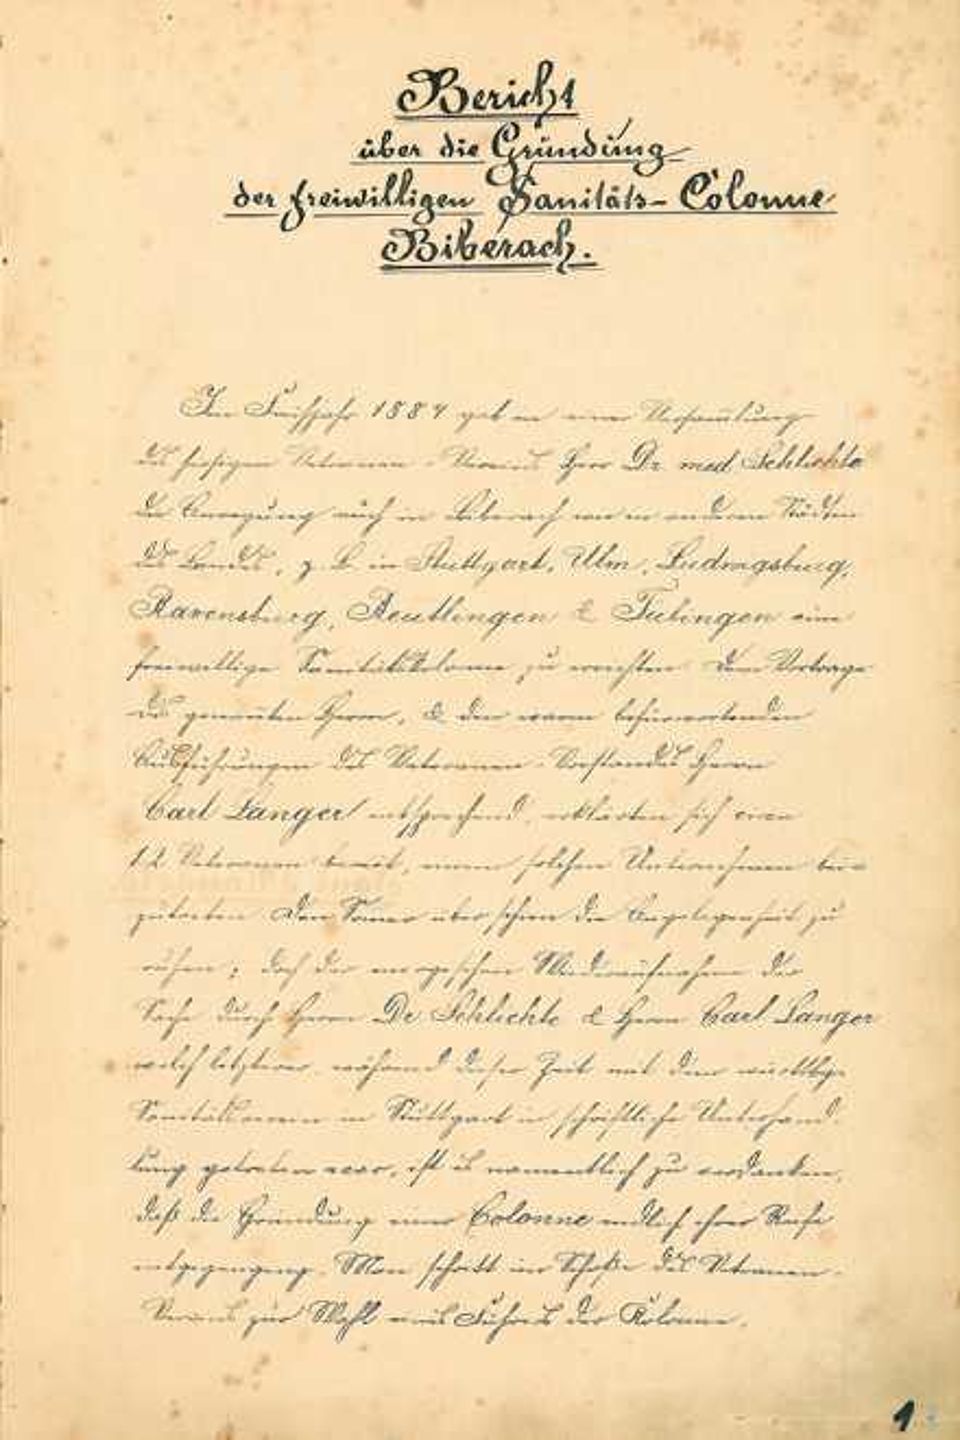 Bericht
über die Gründung
der freiwilligen Sanitäts-Colonne
Biberach.
Im Frühjahr 1884 gab in einer Versammlung
des hiesigen Veteranen-Vereins Herr Dr med Schlichte
die Anregung auch in Biberach wie in anderen Städten
des Landes, z. B. in Stuttgart, Ulm, Ludwigsburg,
Ravensburg, Reutlingen & Tübingen eine
freiwillige Sanitätskolonne zu errichten. Dem Vortrage
des genannten Herrn, & den warm befürwortenden
Ausführungen des Veteranen-Vorstandes Herrn
Carl Langer entsprechend, erklärten sich etwa
12 Veteranen bereit, einem solchen Unternehmen bei-
zutreten. Den Sommer über schien die Angelegenheit zu
ruhen; doch der energischen Wiederaufnahme der
Sache durch Herrn Dr Schlichte & Herrn Carl Langer
welch letzterer während dieser Zeit mit dem württbg.
Sanitätsverein in Stuttgart in schriftliche Unterhand-
lung getreten war, ist es namentlich zu verdanken,
daß die Gründung einer Colonne endlich ihrer Reife
entgegenging. Man schritt im Schoße des Veteranen-
Vereins zur Wahl eines Führers der Kolonne.
1